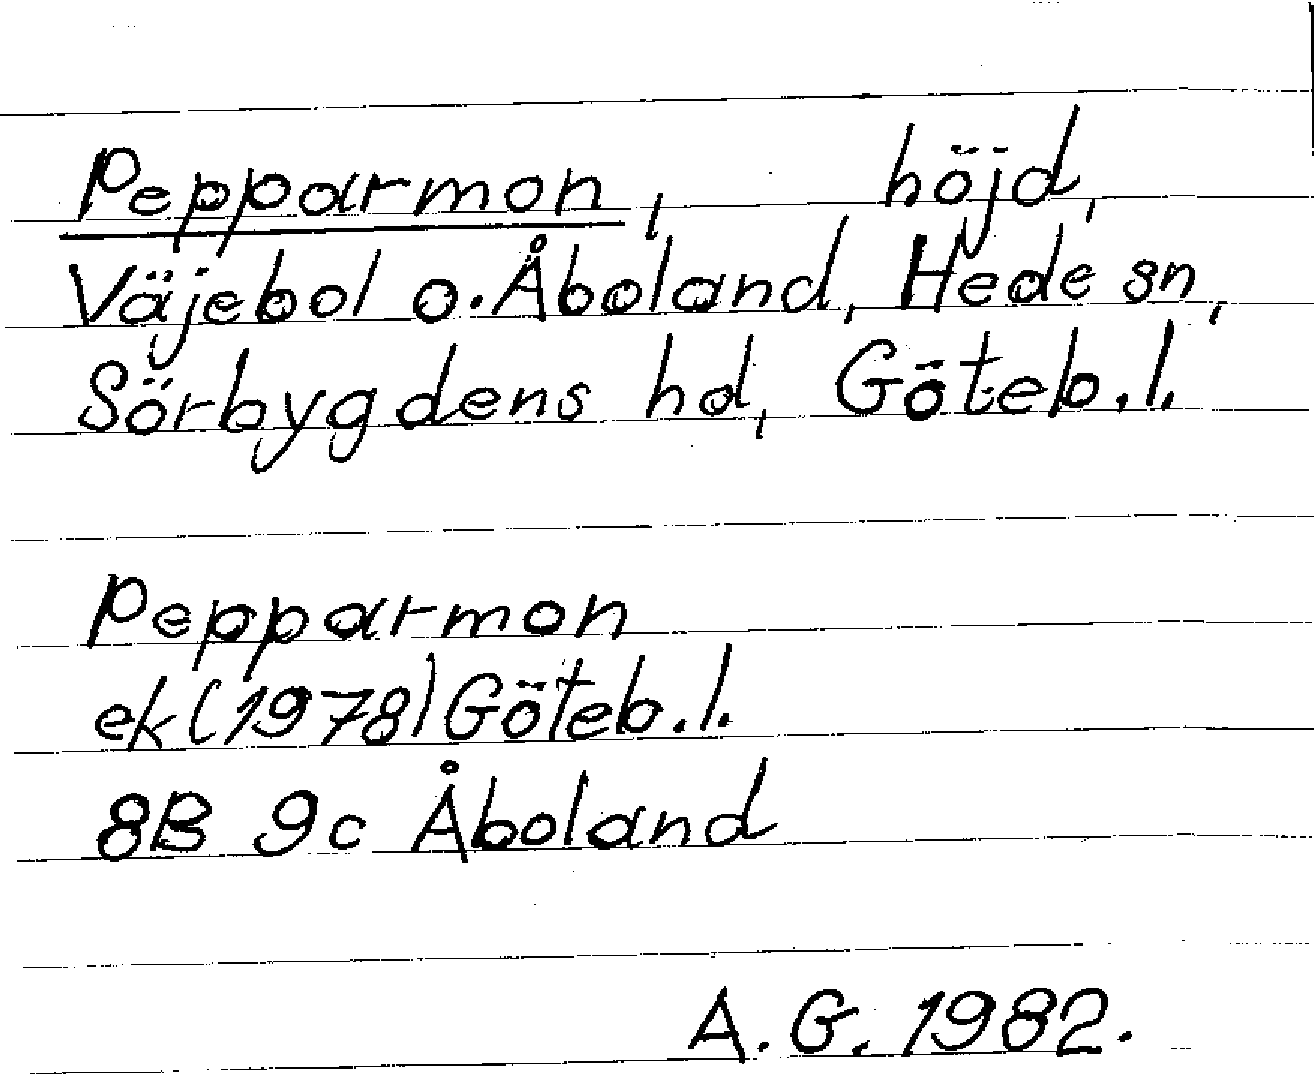 Pepparmon, höjd,
Väjebol o. Åboland, Hede sn,
Sörbygdens hd, Göteb.l.
Pepparmon
ek (1978) Göteb.l.
8B 9c Åboland
A.G. 1982.